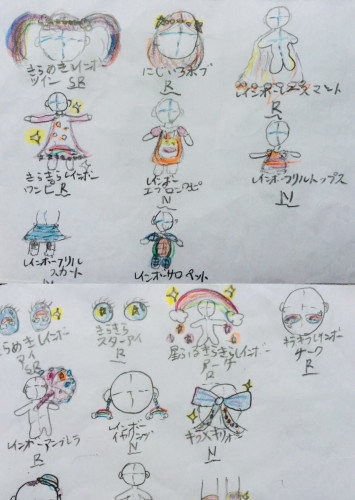 きらめきレインボー
ツイン SR
にじいろボブ
R
レインボーレースマント
R
きらきらレインボー
ワンピ R
レインボー
エプロンワンピ
N
レインボーフリルトップス
N
レインボーフリル
スカート
N
レインボーサロペット
きらめきレインボー
アイ
SR
きらきら
スターアイ
R
星ふるきらきらレインボー
アーチ
キラキラレインボー
チーク
R
レインボーアンブレラ
R
レインボー
イヤリング
N
N